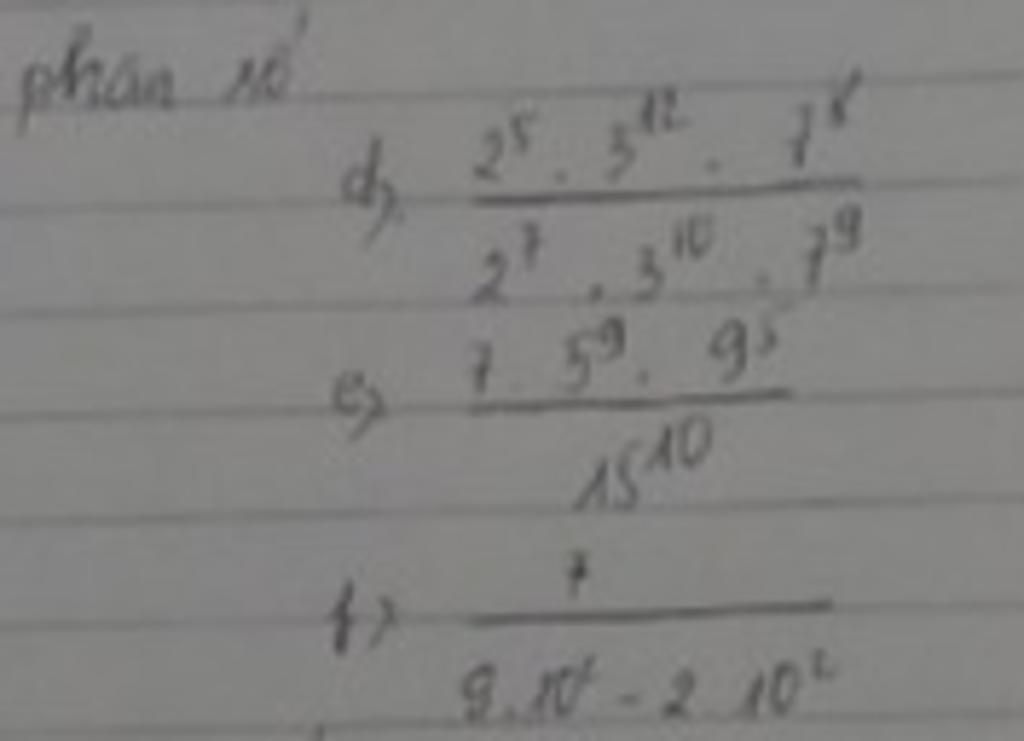 phân số
d) \frac{2^5 . 3^{12} . 7^8}{2^7 . 3^{10} . 7^9}
e) \frac{7 . 5^9 . 9^5}{15^{10}}
f) \frac{7}{9.10^2 - 2.10^2}